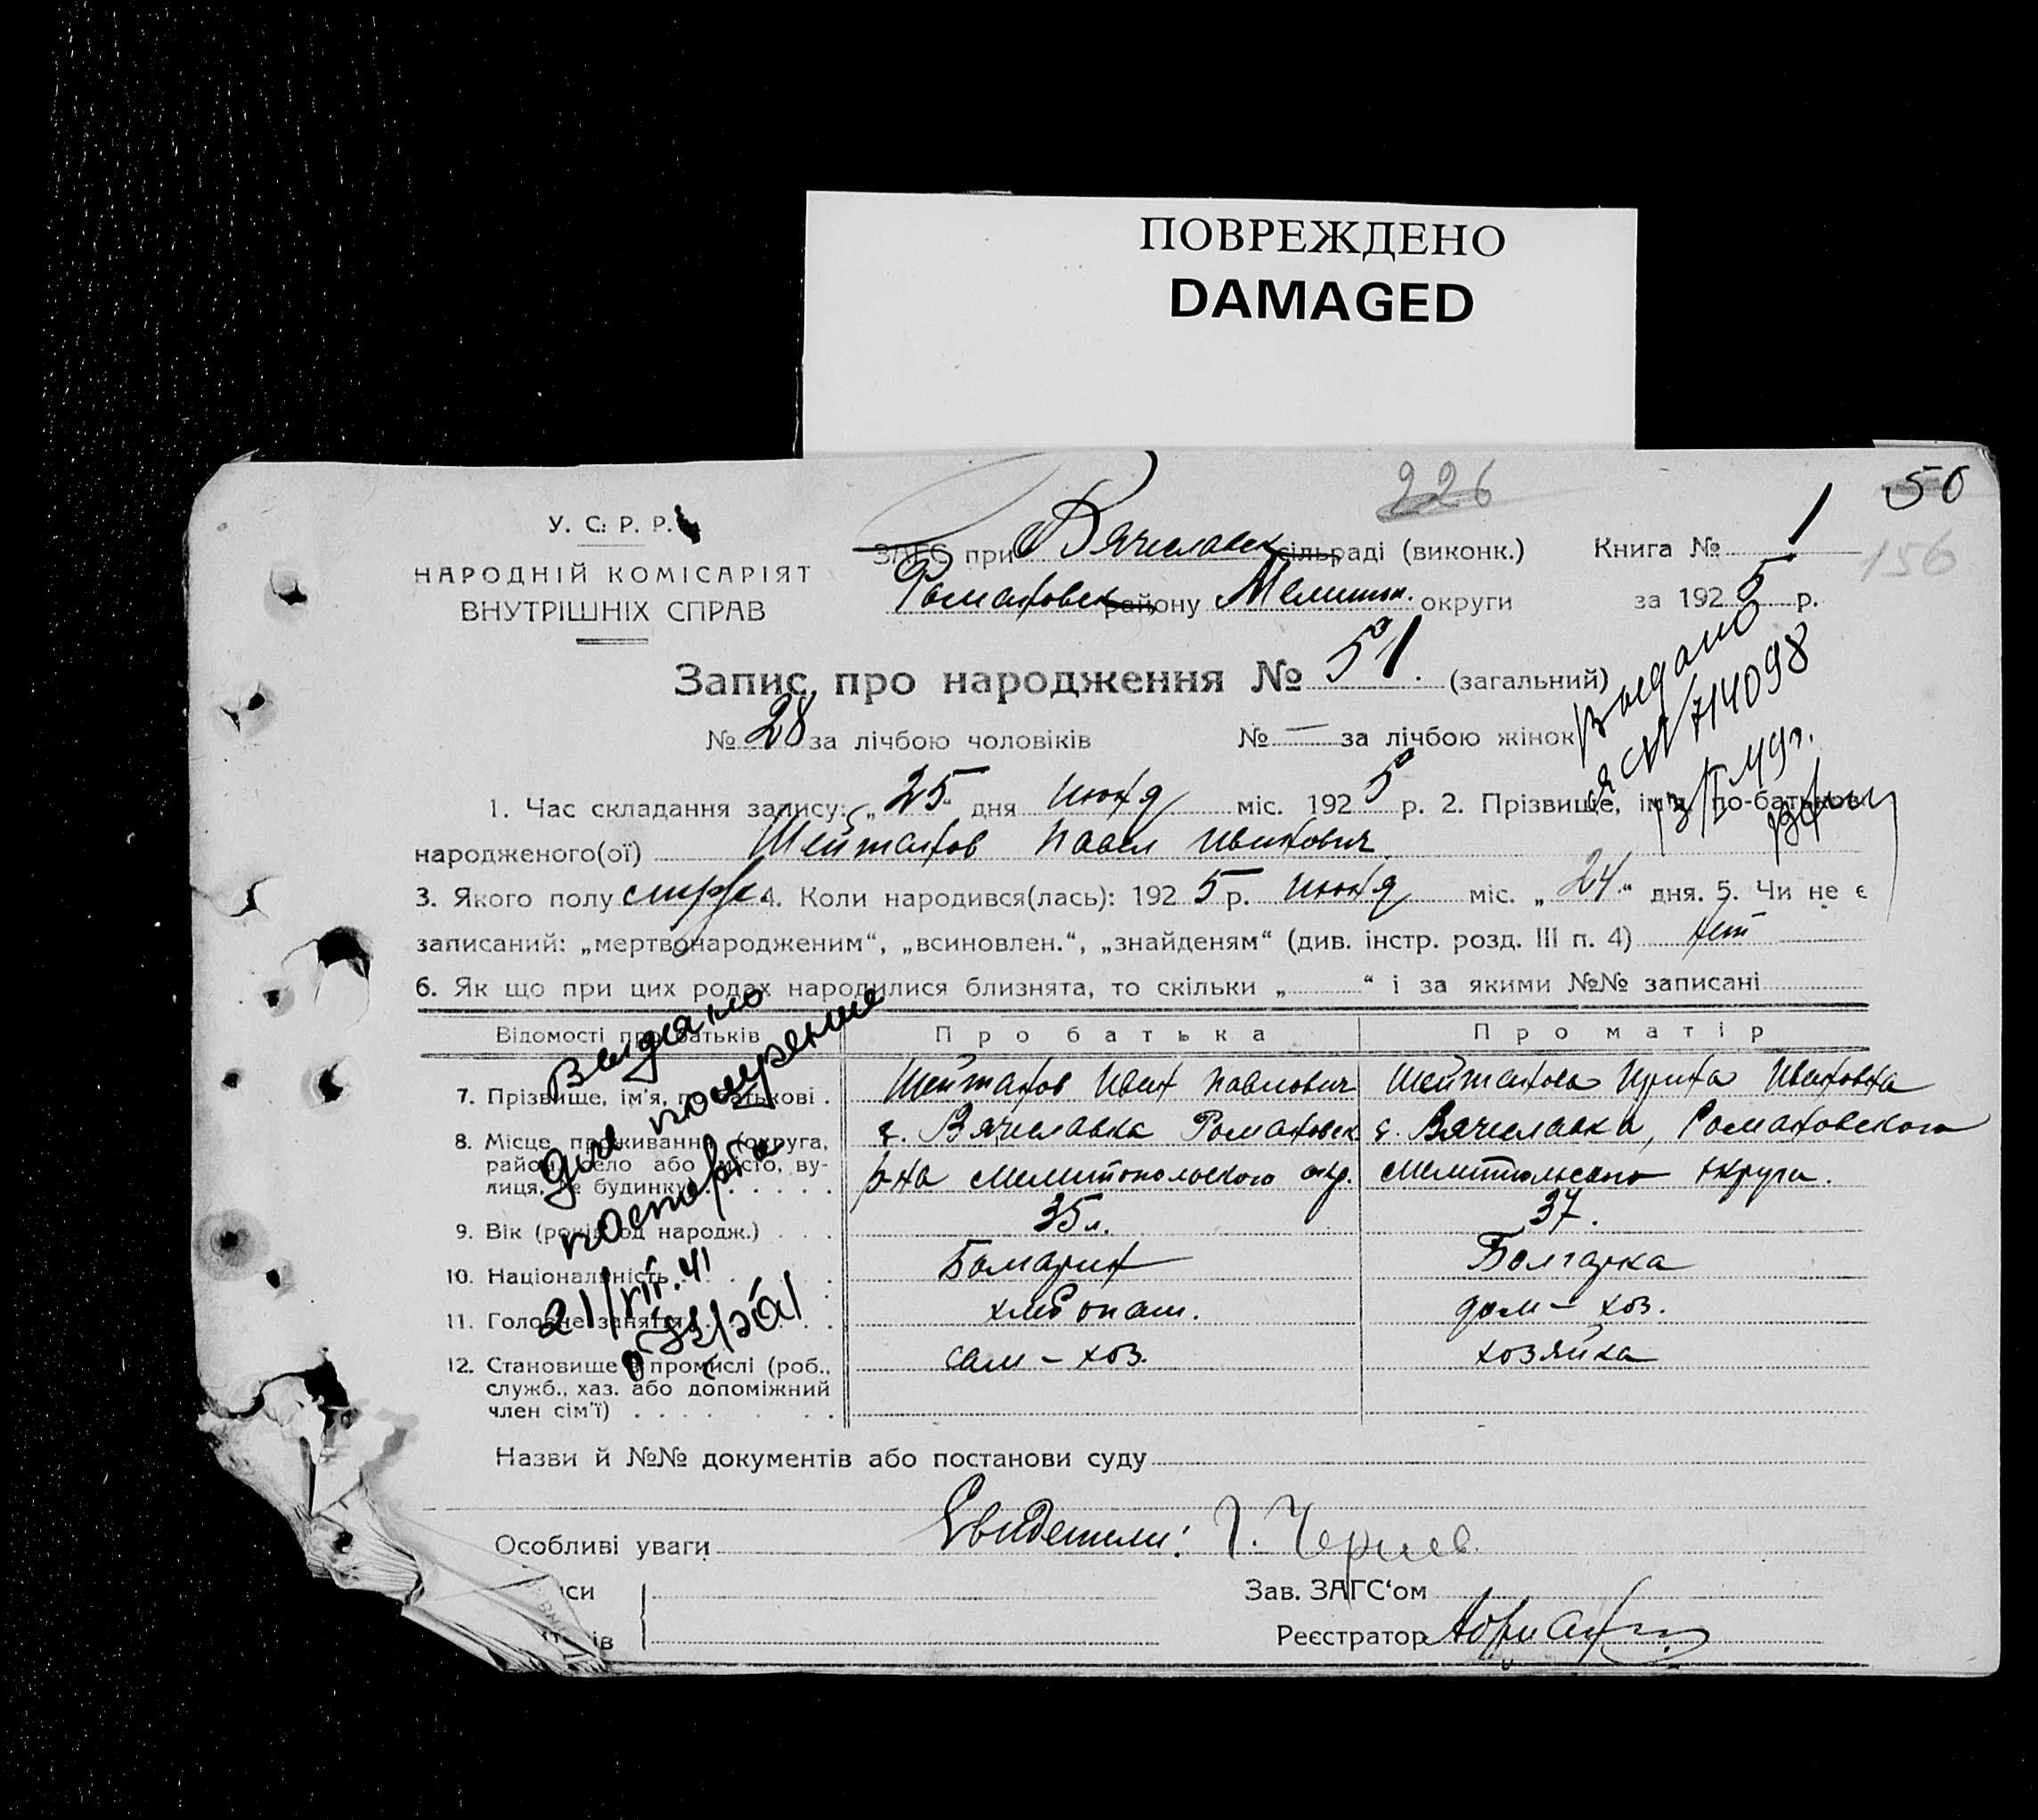 ПОВРЕЖДЕНО
DAMAGED
226
50
156
У. С. Р. Р.
НАРОДНІЙ КОМІСАРІЯТ
ВНУТРІШНІХ СПРАВ
ЗАГС при Вячеславск сільраді (виконк.) Книга № 1
Романовск району Мелитоп. округи за 1925 р.
Запис про народження № 51. (загальний)
№ 28 за лічбою чоловіків № — за лічбою жінок
Выдано
714098
1. Час складання запису: „25“ дня июня міс. 1925 р. 2. Прізвище, ім'я, по-батькові
народженого(ої) Шейтанов Павел Иванович
3. Якого полу 4. Коли народився(лась): 1925 р. июня міс. „24“ дня. 5. Чи не є
записаний: „мертвонародженим“, „всиновлен.“, „знайденям“ (див. інстр. розд. III п. 4) нет
6. Як що при цих родах народилися близнята, то скільки „ “ і за якими №№ записані
Відомості про батьків Про батька Про матір
7. Прізвище, ім'я, по батькові . Шейтанов Иван Павлович Шейтанова Ирина Ивановна
8. Місце проживання (округа, с. Вячеславка Романовск с. Вячеславка, Романовского
район, село або місто, ву- р-на Мелитопольского окр. Мелитопольского округа.
лиця, № будинку)
9. Вік (років од народж.) 35 л. 37.
10. Національність Болгарин Болгарка
11. Головне заняття хлебопаш. дом – хоз.
12. Становище в промислі (роб., сам – хоз. хозяйка
служб., хаз. або допоміжний
член сім'ї)
Выдано
для
паспорта
21/VII.41
Назви й №№ документів або постанови суду
Особливі уваги Свидетели:
Зав. ЗАГС‘ом
Реєстратор